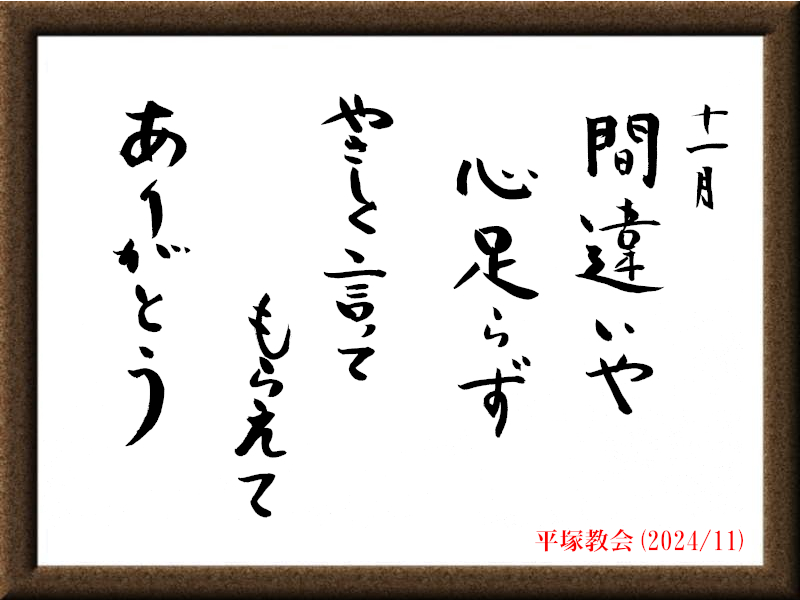 十一月
間違いや
心足らず
やさしく言って
もらえて
ありがとう
平塚教会(2024/11)